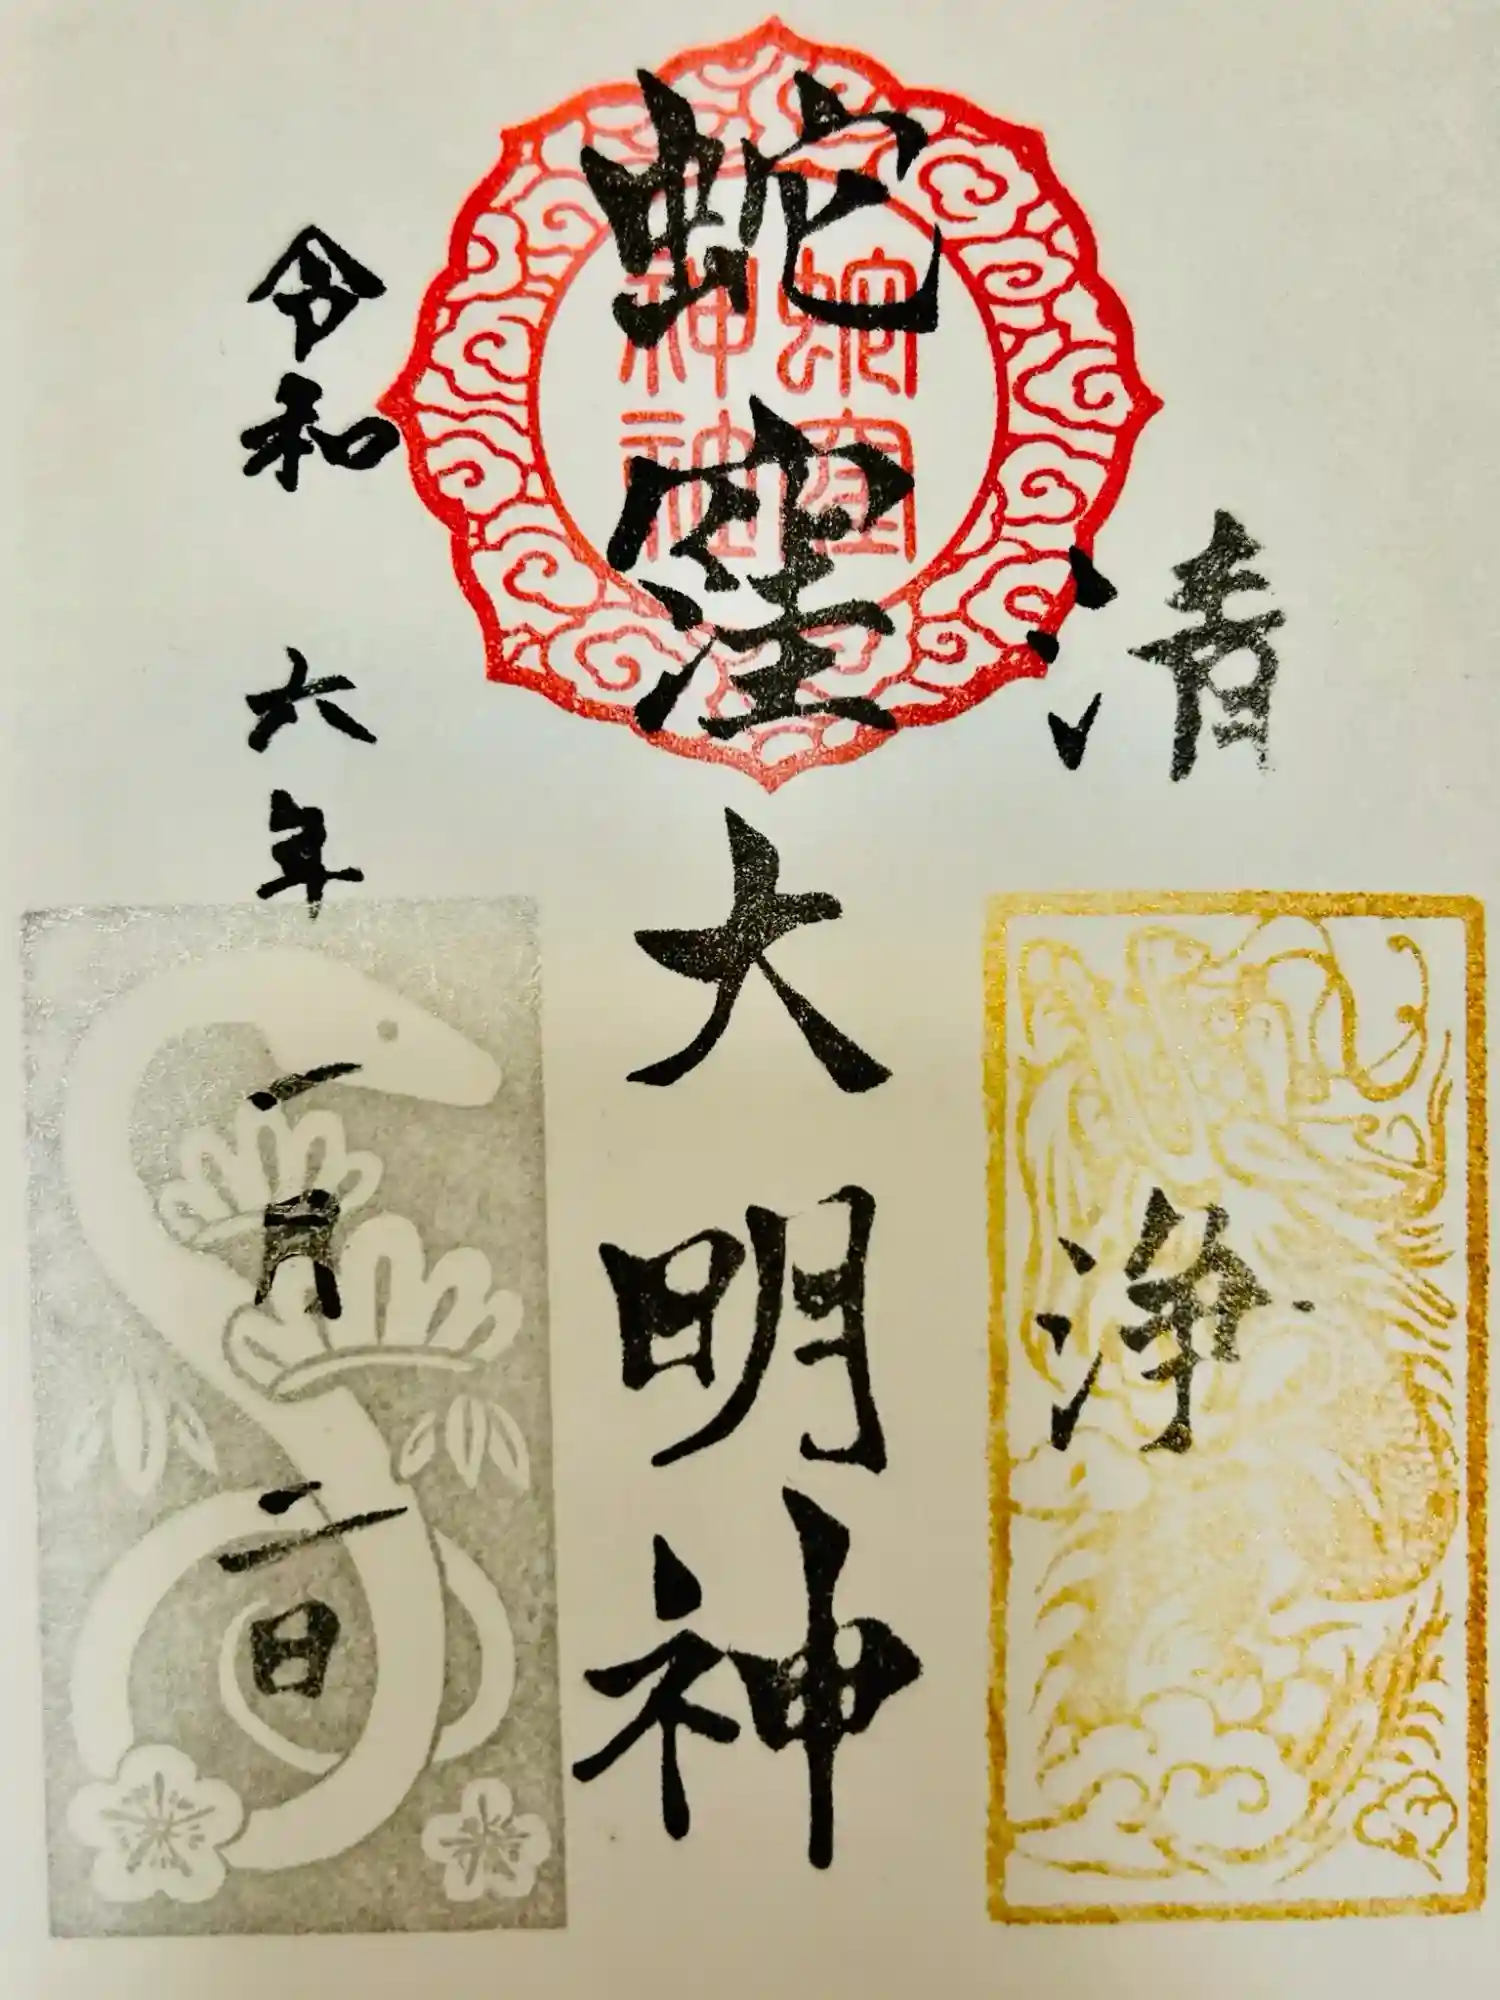 清浄
蛇窪大明神
蛇窪
神社
令和六年一月二日